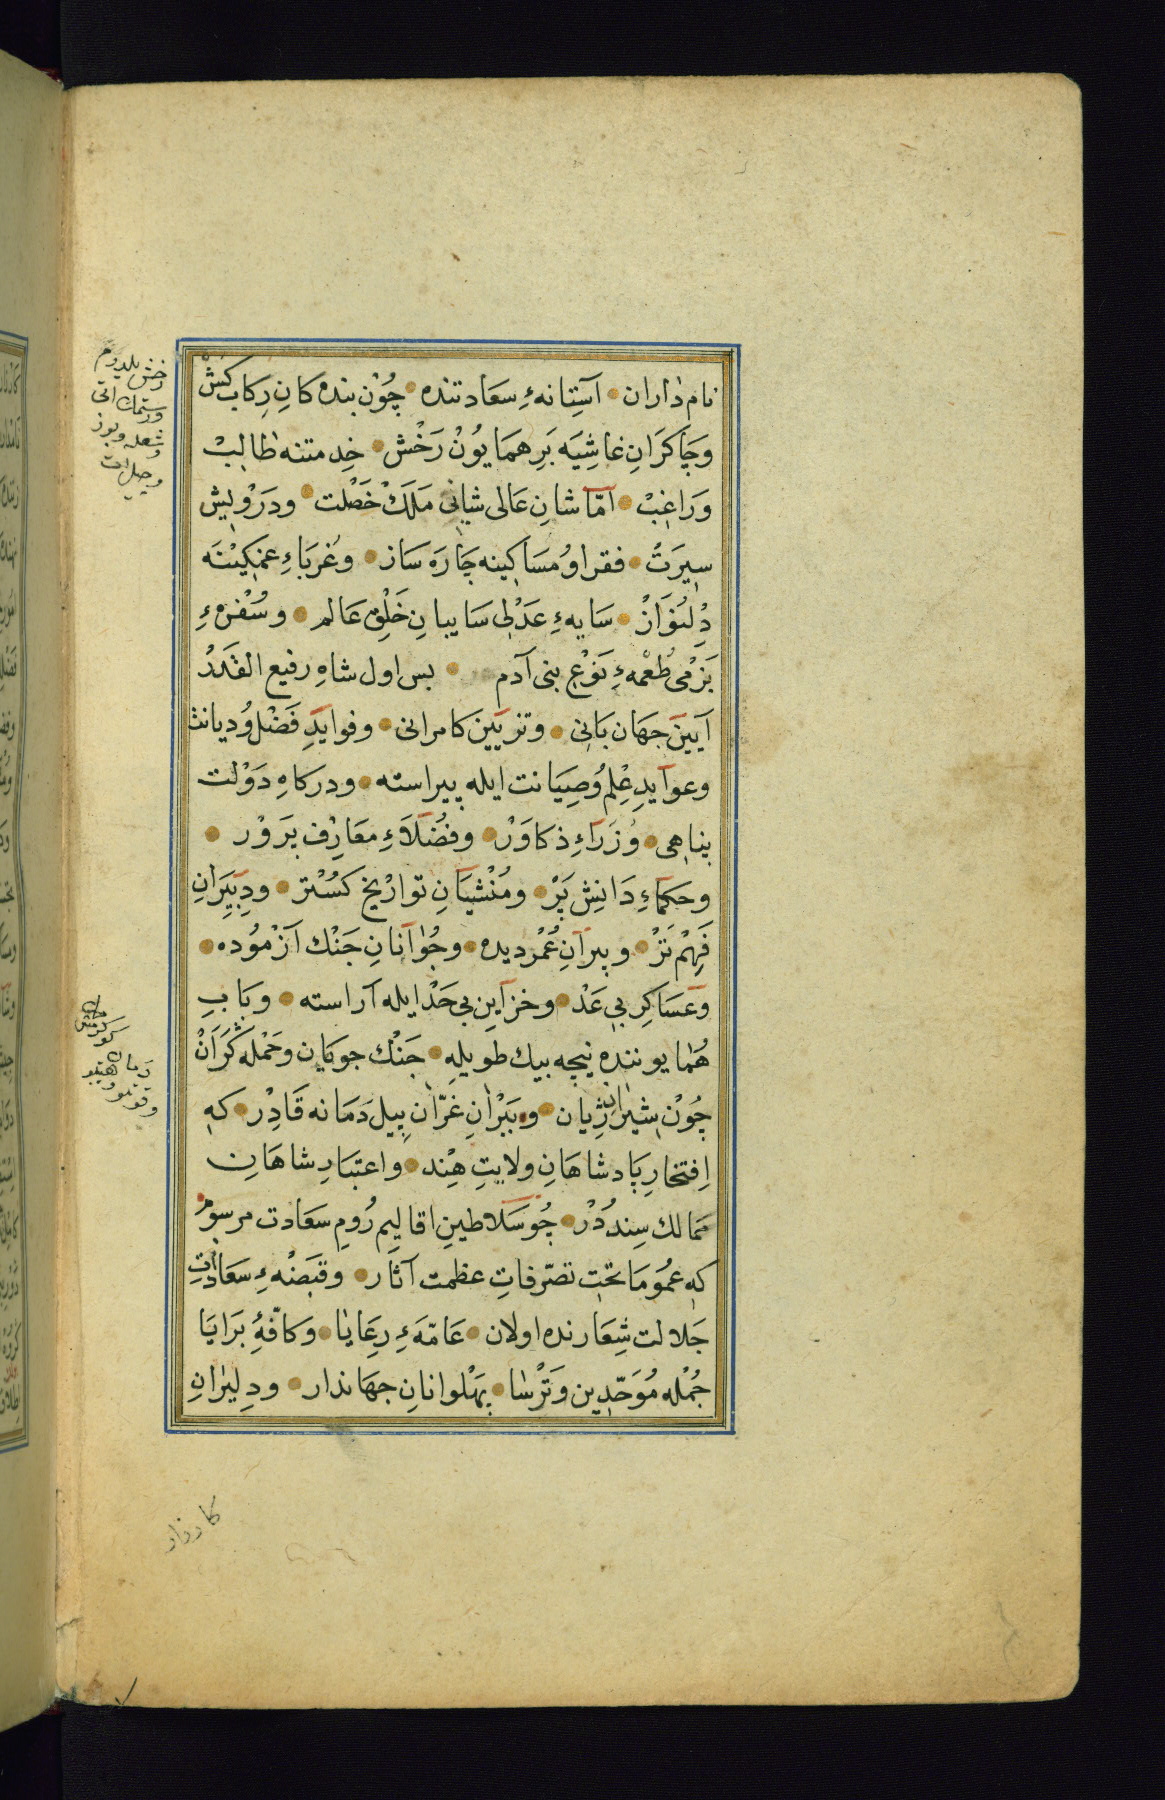 نام داران آستِانهٔءِ سعادتنده چُوْن بنده كانِ رِكاب كَشْ
وَجَاكَرَانِ غاشِيَه بَرِ همَايُونْ رَخْش خِدمتنه طالِبْ
وَرَاغِبْ امّا شانِ عَالى شانى مَلَكْ خَصْلت ودَرْوِيش
سِيرَتْ فقرا وُ مسَاكِينه چَارَه سَاز وغُربَاءِ غمكِينَه
دِلْنَوَازْ سَايهءِ عَدْلِى سَايبانِ خَلْقِ عَالم وسُفْرهءِ
بَزْمى طُعْمهءِ نَوْعِ بنى آدم بس اول شاهِ رفيع القَدْرْ
آيينِ جهَان بَانِى وتزيين كامرانى وفوايدِ فَضْل وُ ديانت
وعوايدِ عِلْم وُ صِيَانت ايله پيراسته ودركاهِ دَوْلت
پناهى وُزَرَاءِ ذكاوَرْ وفضُلَاءِ معَارِف پَرَوْر
وحكماءِ دَانِش پَرْ ومُنْشيَانِ توارْيخ كسُتر ودِبيرَانِ
فَهِمْ تَرْ وپيرَانِ عُمْر ديده وجُوانَانِ جَنْك آزْمُوده
وَعَسَاكِرِ بى عَدْ وخزاينِ بى حَدْ ايله آراسته وبَابِ
هُمايوننده نيچه بيك طويله جَنْك جويان وحَمْله كَرَانْ
چُوْن شيرَانِ ژِيان وبَبْرَانِ غرّان پيل دَمَانه قَادِرْ كه
اِفتخارِ پَادشاهَانِ ولايتِ هِنْد واعتبَارِ شاهَانِ
ممَالك سِنددُرْ چُو سَلاطينِ اقاليمِ رُومِ سعَادت مرسومْ
كه عُمومَا تَحْتِ تصرّفاتِ عظمت آثار وقبَضْهءِ سعَاداتِ
جَلالت شِعَارنده اولان عَامّهَءِ رِعَايَا وكافّهءِ بَرايَا
جُمْله مُوَحّدِين وَتَرْسَا پهَلْوانانِ جهَاندار ودِليرَانِ
رخش يلديرم
ورستمك اتى
وشعله وبوز
وچيل ات
دَمان
كارزار